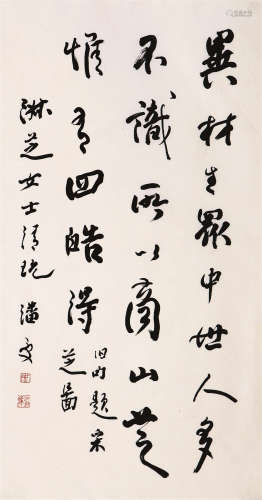 異材生眾中世人多
不識所以商山芝
惟有四皓得
旧句題采
芝圖
芝女士清玩 潘受